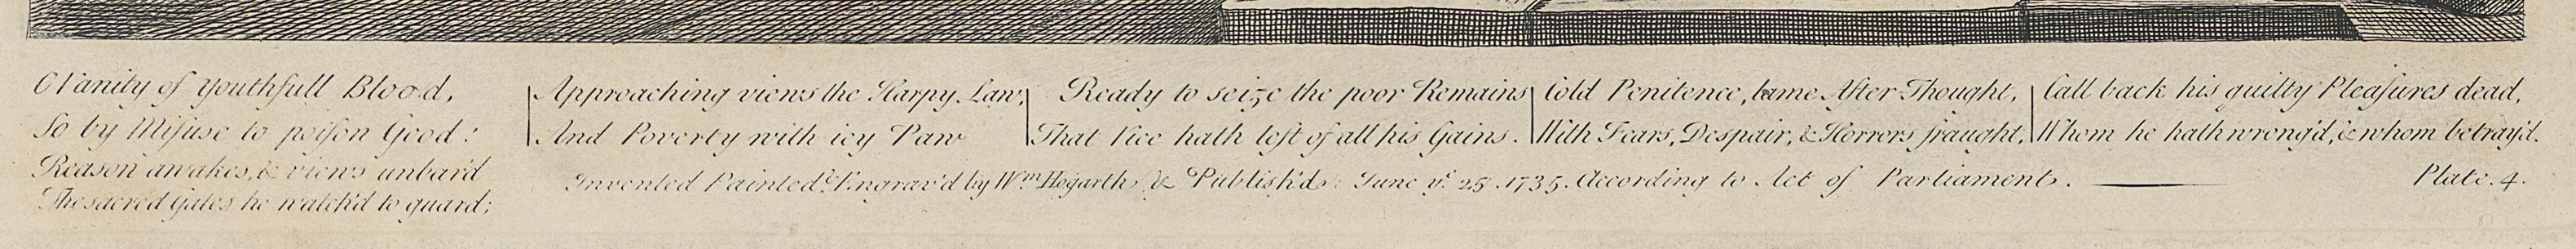 O Vanity of Youthfull Blood,
So by Misuse to poison Good!
Reason awakes, & views unbar'd
The sacred Gates he watch'd to guard;
Approaching views the Harpy Law,
And Poverty with icy Paw
Ready to seize the poor Remains
That Vice hath left of all his Gains.
Cold Penitence, lame After Thought,
With Fears, Despair, & Horrors fraught,
Call back his guilty Pleasures dead,
Whom he hath wrong'd, & whom betray'd.
Invented Painted & Engrav'd by Wm. Hogarth, & Publish'd June ye. 25. 1735. According to Act of Parliament.
Plate. 4.